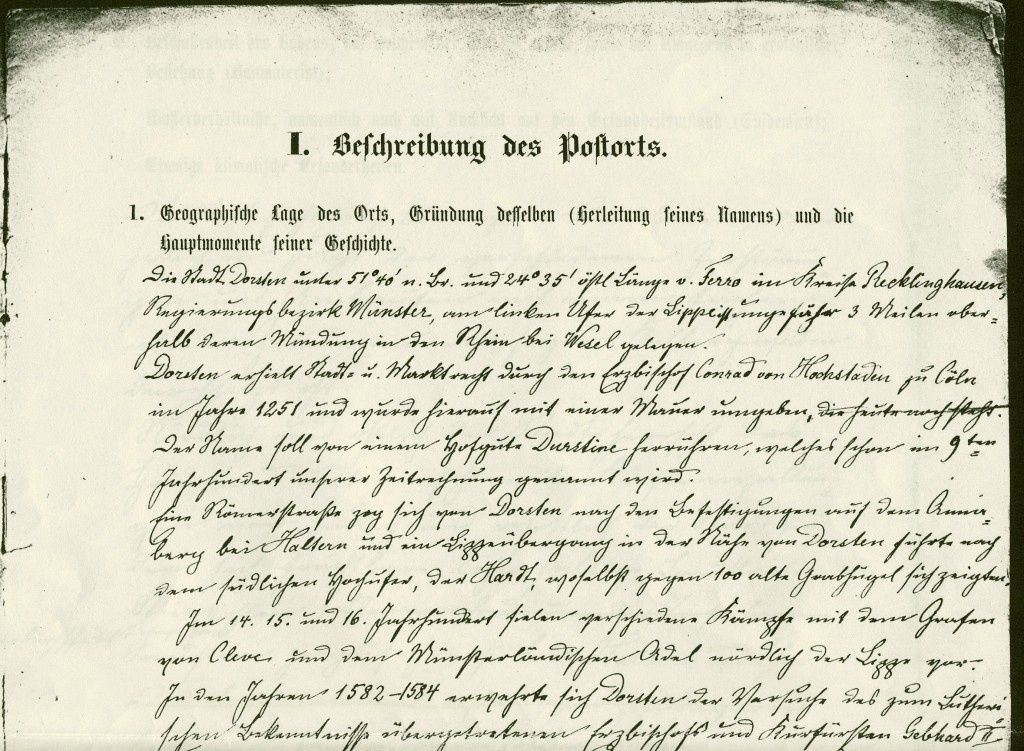 I. Beschreibung des Postorts.
1. Geographische Lage des Orts, Gründung desselben (Herleitung seines Namens) und die
Hauptmomente seiner Geschichte.
Die Stadt Dorsten unter 51° 40' n. Br. und 24° 35' östl Länge v. Ferro im Kreise Recklinghausen,
Regierungsbezirk Münster, am linken Ufer der Lippe ist ungefähr 3 Meilen ober=
halb deren Mündung in den Rhein bei Wesel gelegen.
Dorsten erhielt Stadt= u. Marktrecht durch den Erzbischof Conrad von Hochstaden zu Cöln
im Jahre 1251 und wurde hierauf mit einer Mauer umgeben, die heute noch steht.
Der Name soll von einem Hofgute Durstine herrühren, welches schon im 9ten
Jahrhundert unserer Zeitrechnung genannt wird.
Eine Römerstraße zog sich von Dorsten nach den Befestigungen auf dem Anna=
berg bei Haltern und ein Lippeübergang in der Nähe von Dorsten führte nach
dem südlichen Hochufer, der Hardt, woselbst gegen 100 alte Grabhügel sich zeigten.
Im 14. 15. und 16. Jahrhundert fielen verschiedene Kämpfe mit dem Grafen
von Cleve und dem Münsterländischen Adel nördlich der Lippe vor.
In den Jahren 1582-1584 erwehrte sich Dorsten der Versuche des zum Lutheri
schen Bekenntnisse übergetretenen Erzbischofs und Kurfürsten Gebhard II